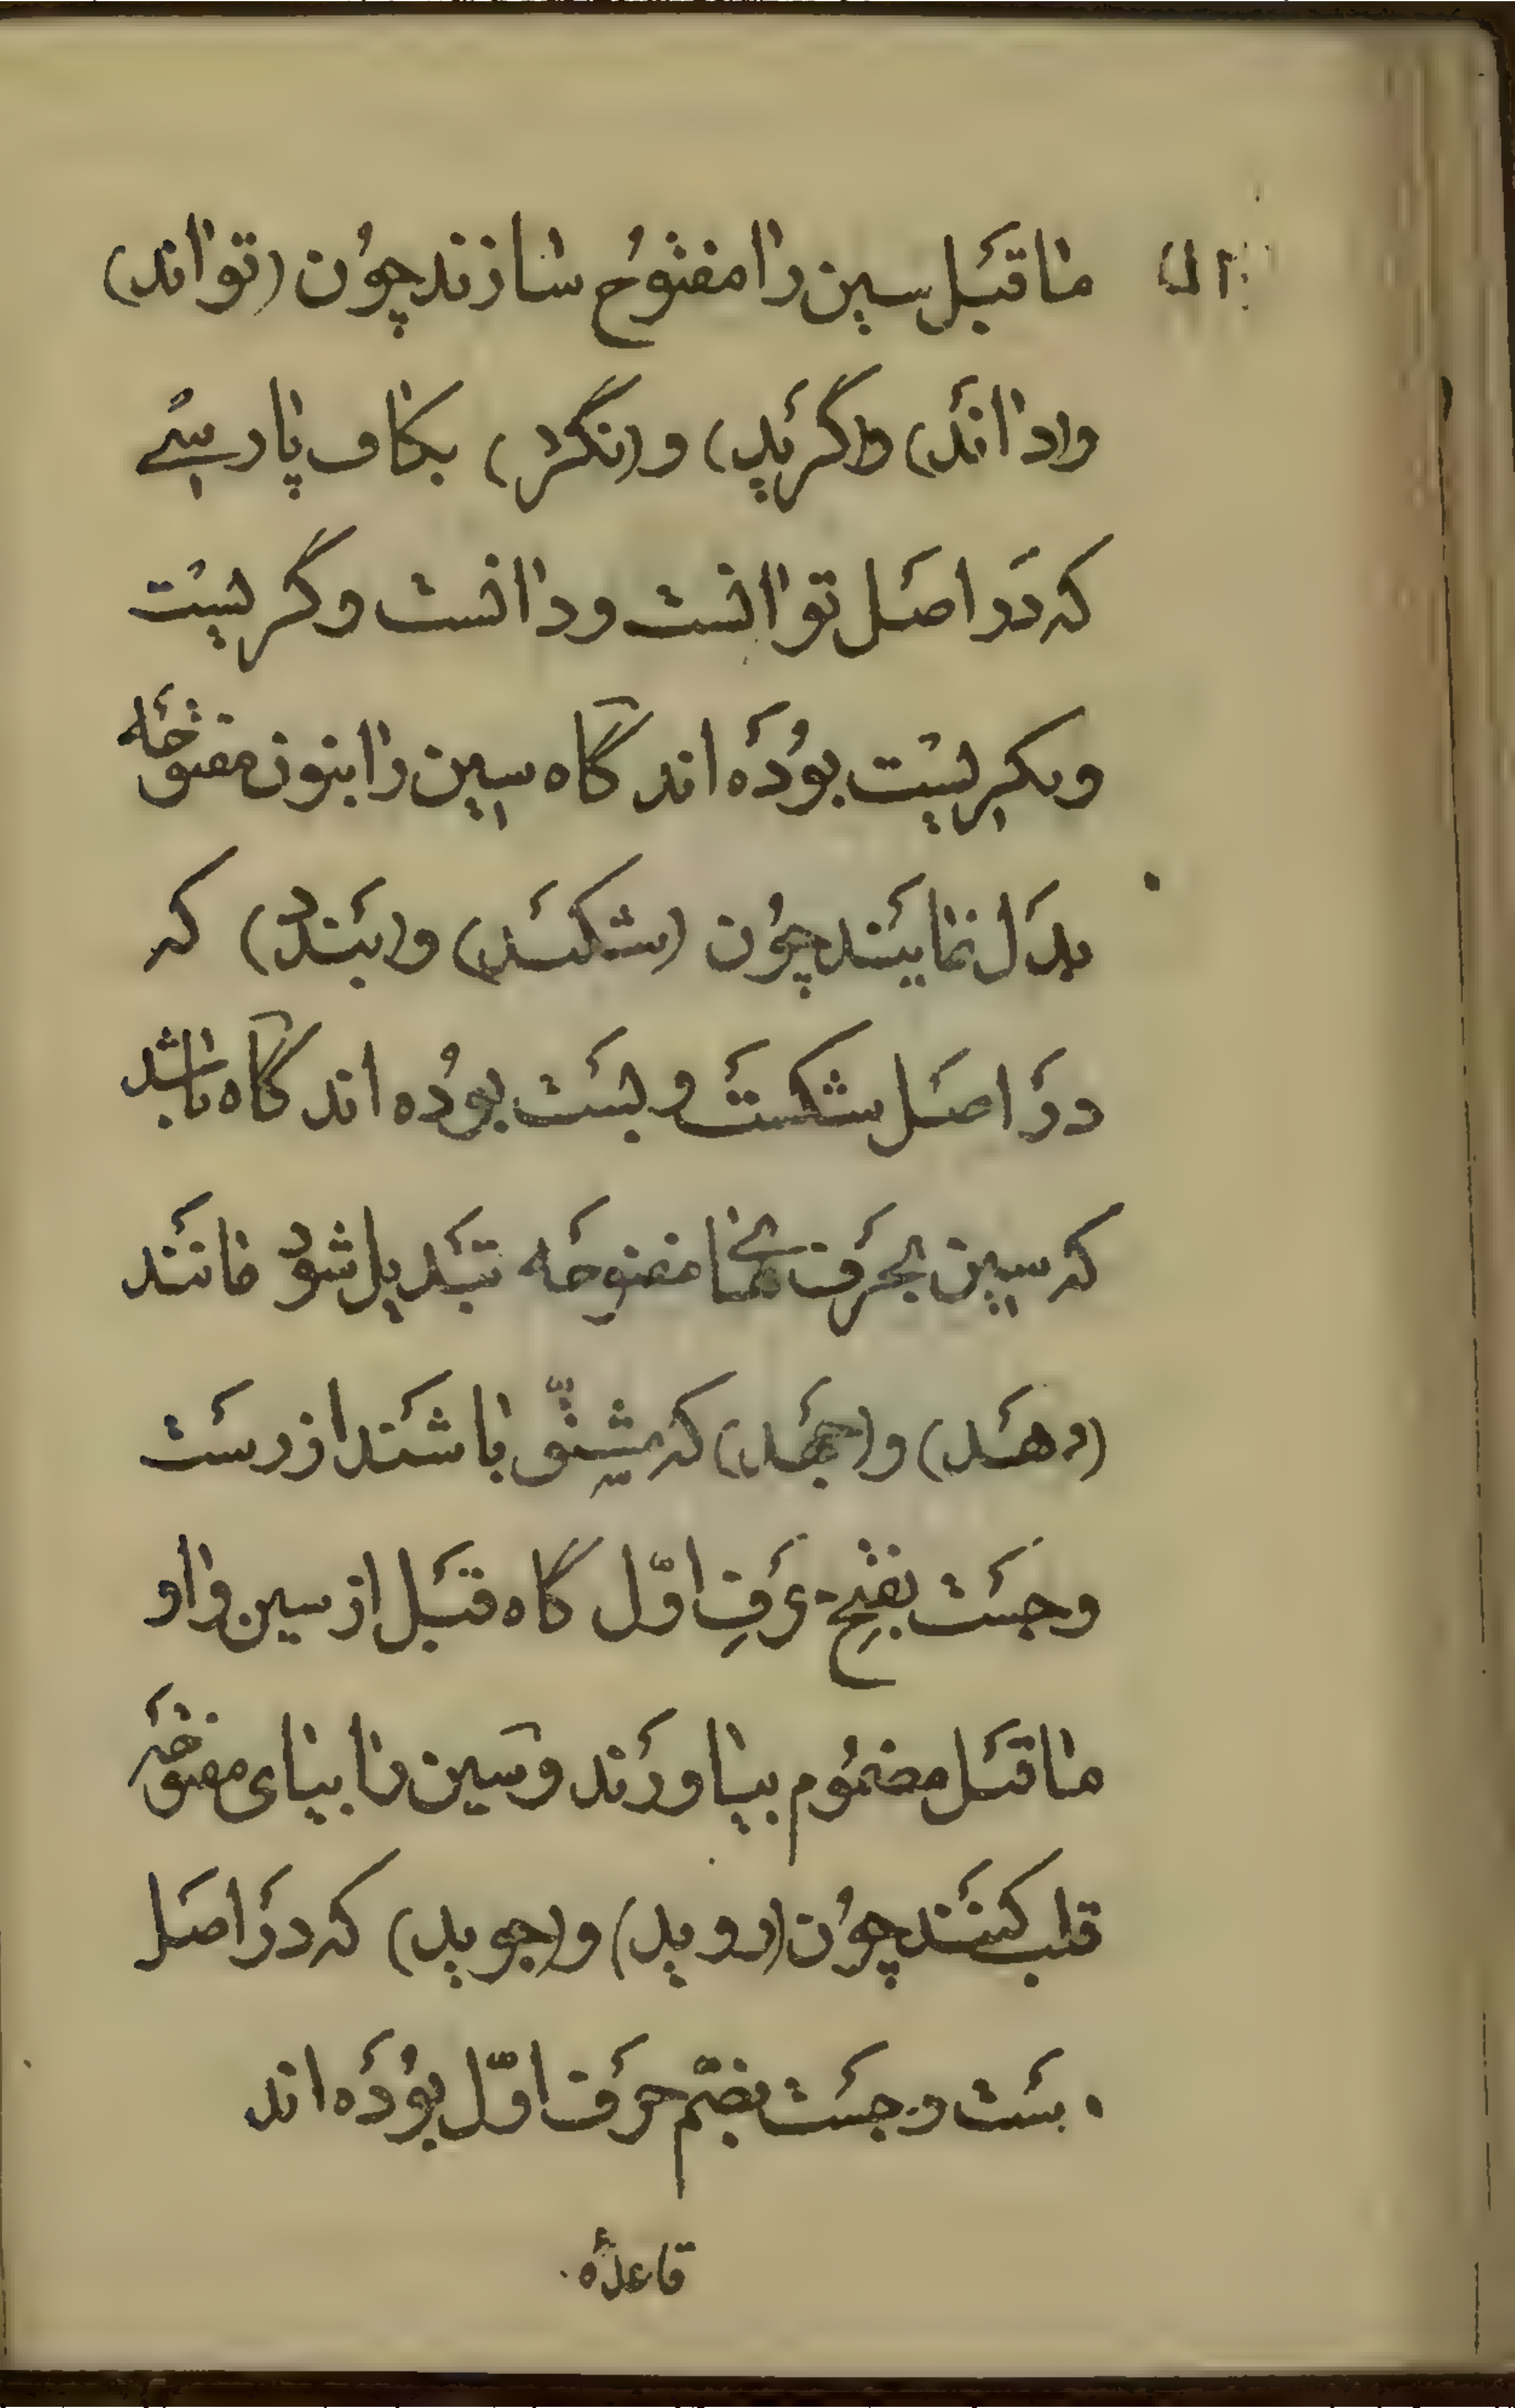 ما قبل سین را مفتوح سازند چون (تواند)
و(داند) و(گرید) و(نگرد) بکاف پارسی
که در اصل توانست و دانست و گریست
و نکریست بوده اند گاه سین را بنون مفتوحه
بدل نمایند چون (شکند) و(بندد) که
در اصل شکست و بست بوده اند گاه باشد
که سین بحرف ها مفتوحه تبدیل شود مانند
(رهد) و(جهد) که مشتق باشند از رست
و جست بفتح حرف اول گاه قبل از سین واو
ما قبل مضموم بیاورند و سین را بیای مفتوحه
قلب کنند چون (روید) و(جوید) که در اصل
رست و جست بضم حرف اول بوده اند
قاعده